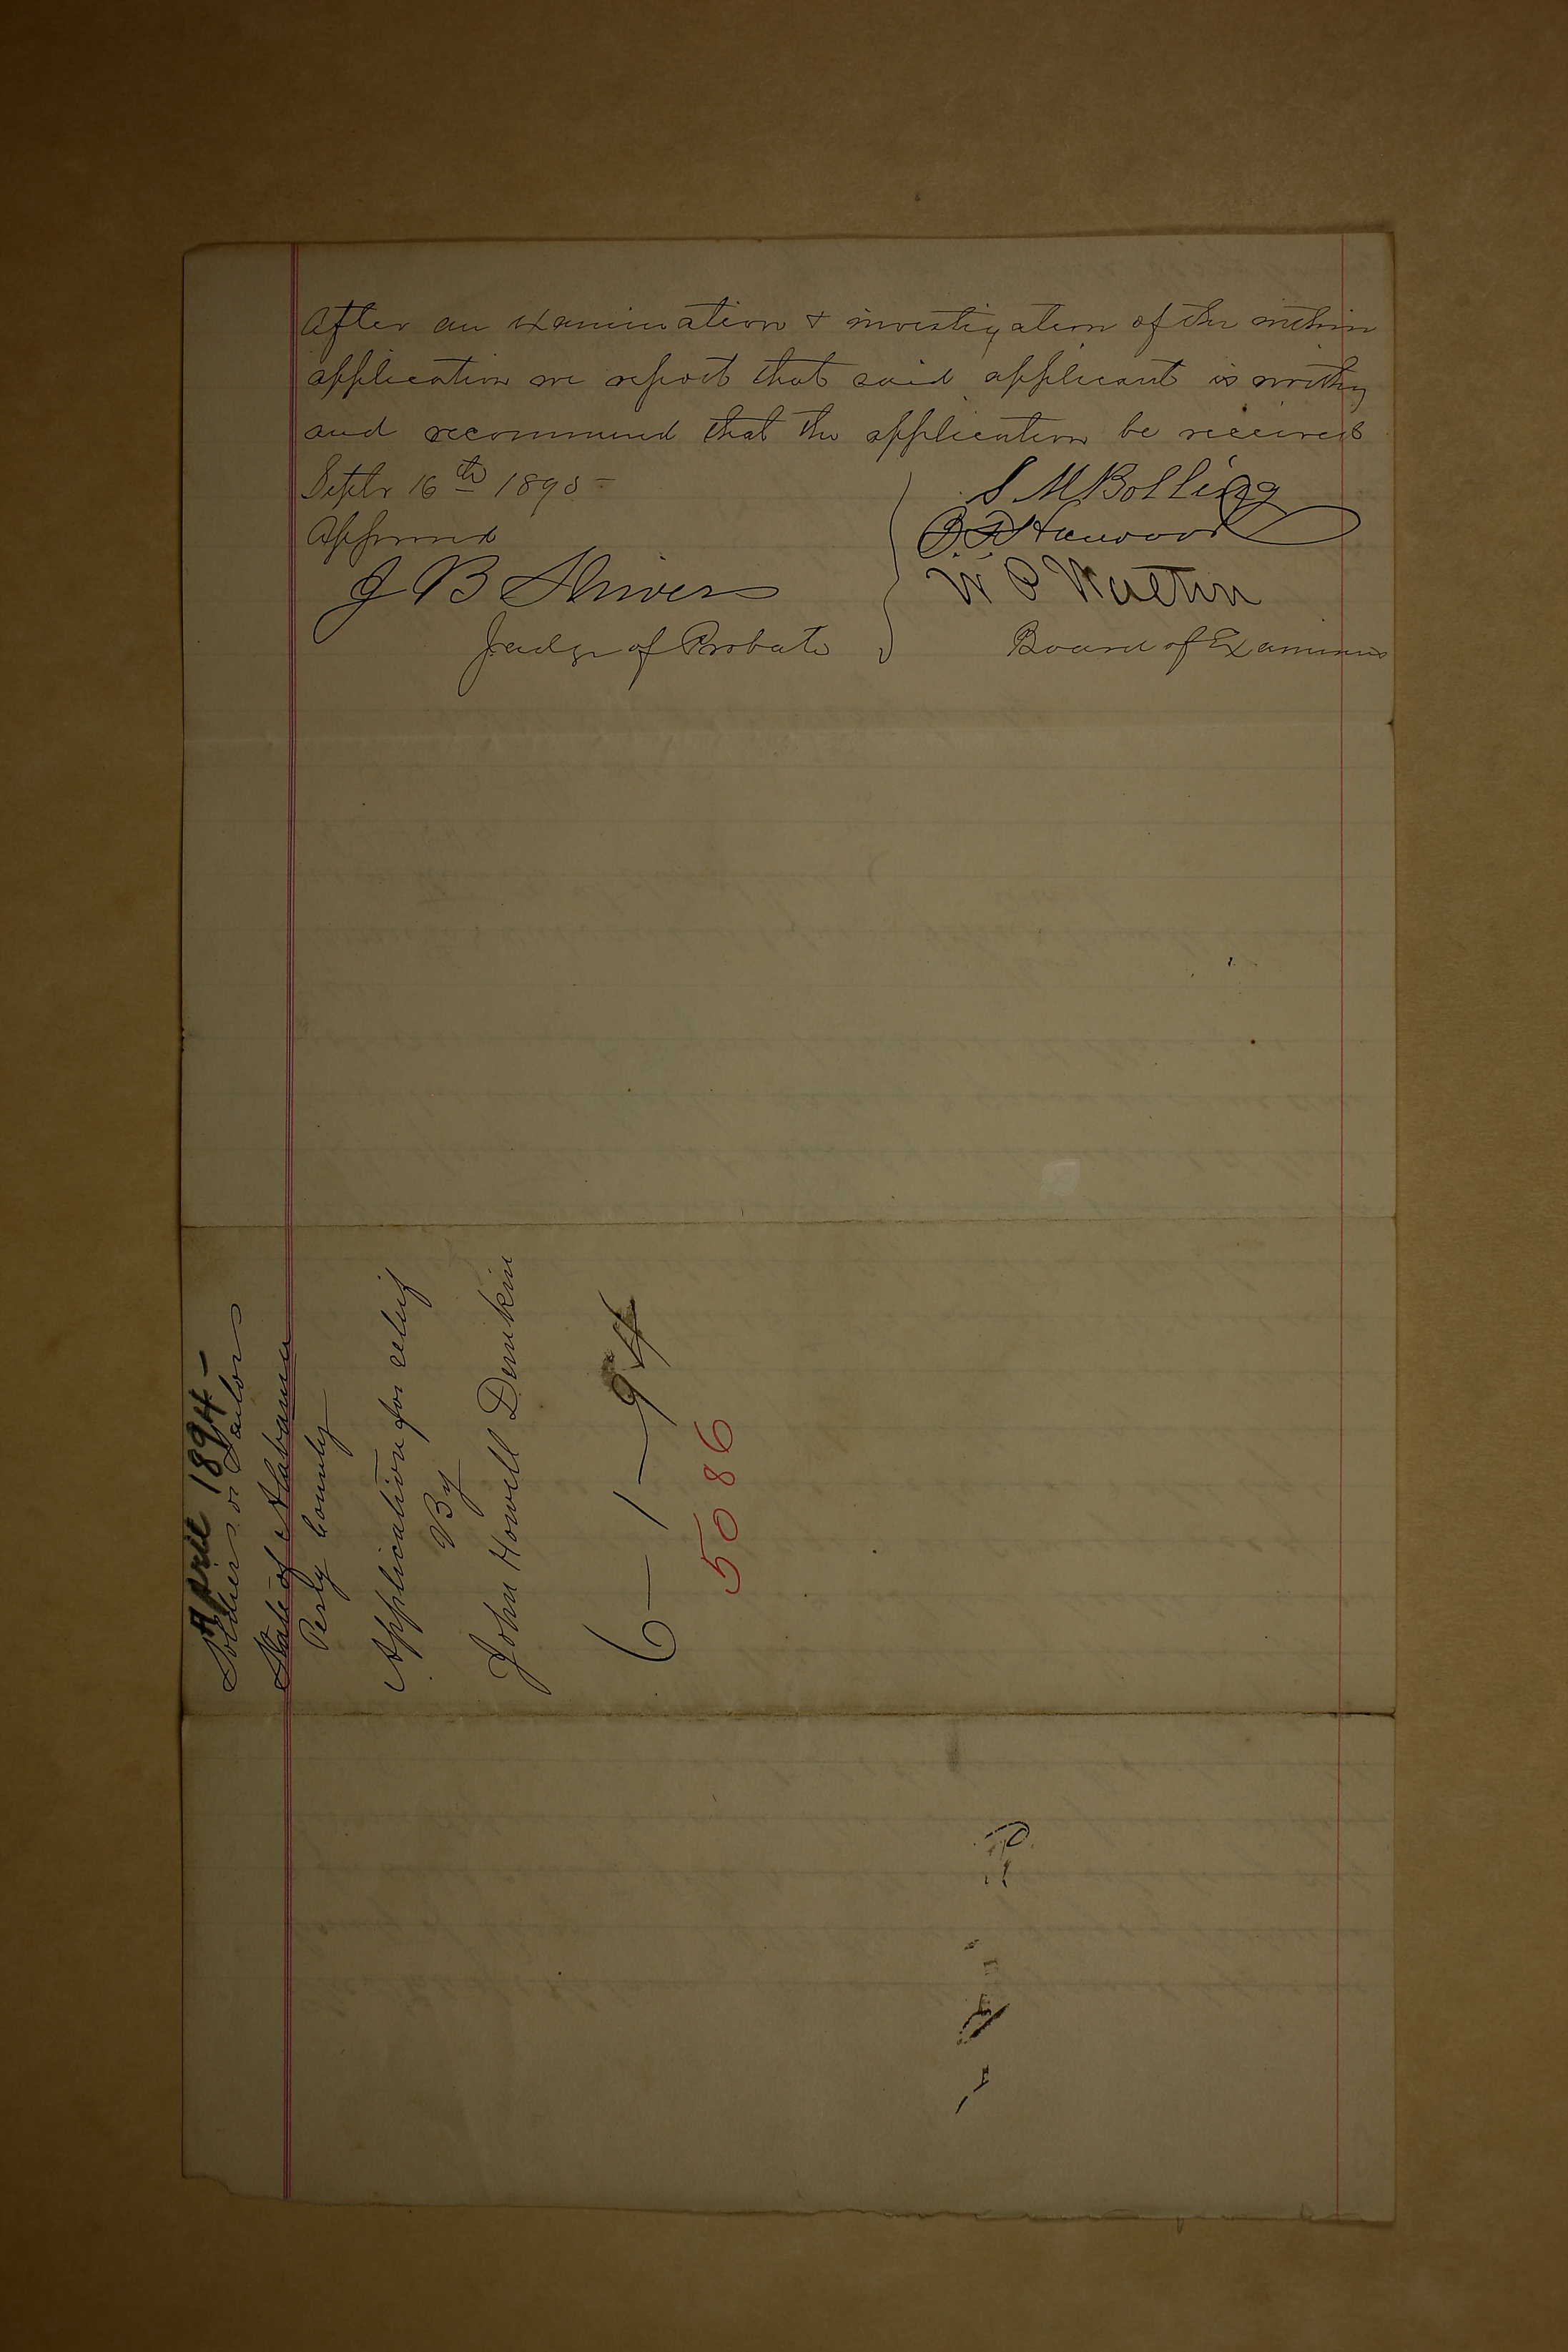 After an examination & investigation of the within
application we report that said applicant is worthy
and recommend that the application be received
Septbr 16th 1893 -
Approved
J B Shivers
Judge of Probate
S M Bolling
Harwood
W P
Board of Examiners
April 1894 -
Soldiers or Sailors
State of Alabama
Perry County
Application for relief
By
John Howell
6 - 1 - 94
5086